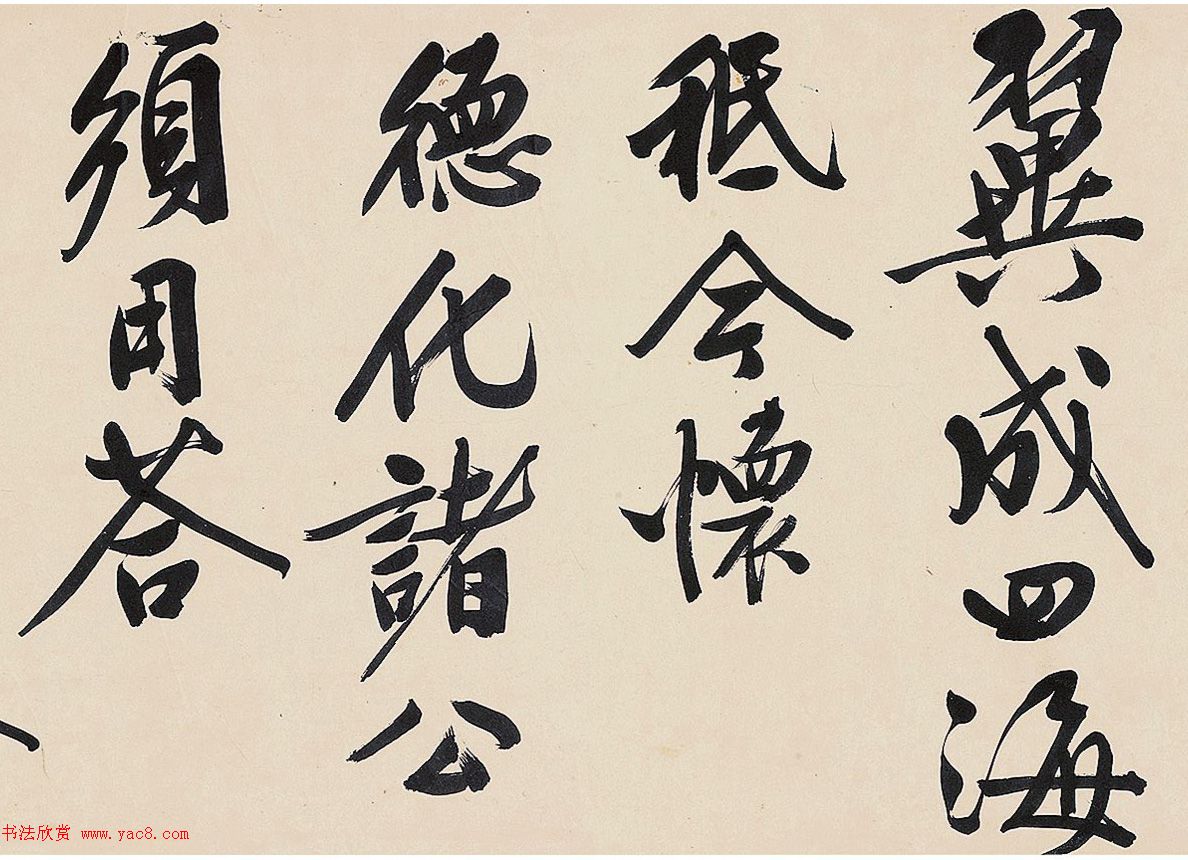 翼成四海
秖今懷
德化諸公
須用荅
书法欣赏 www.yac8.com